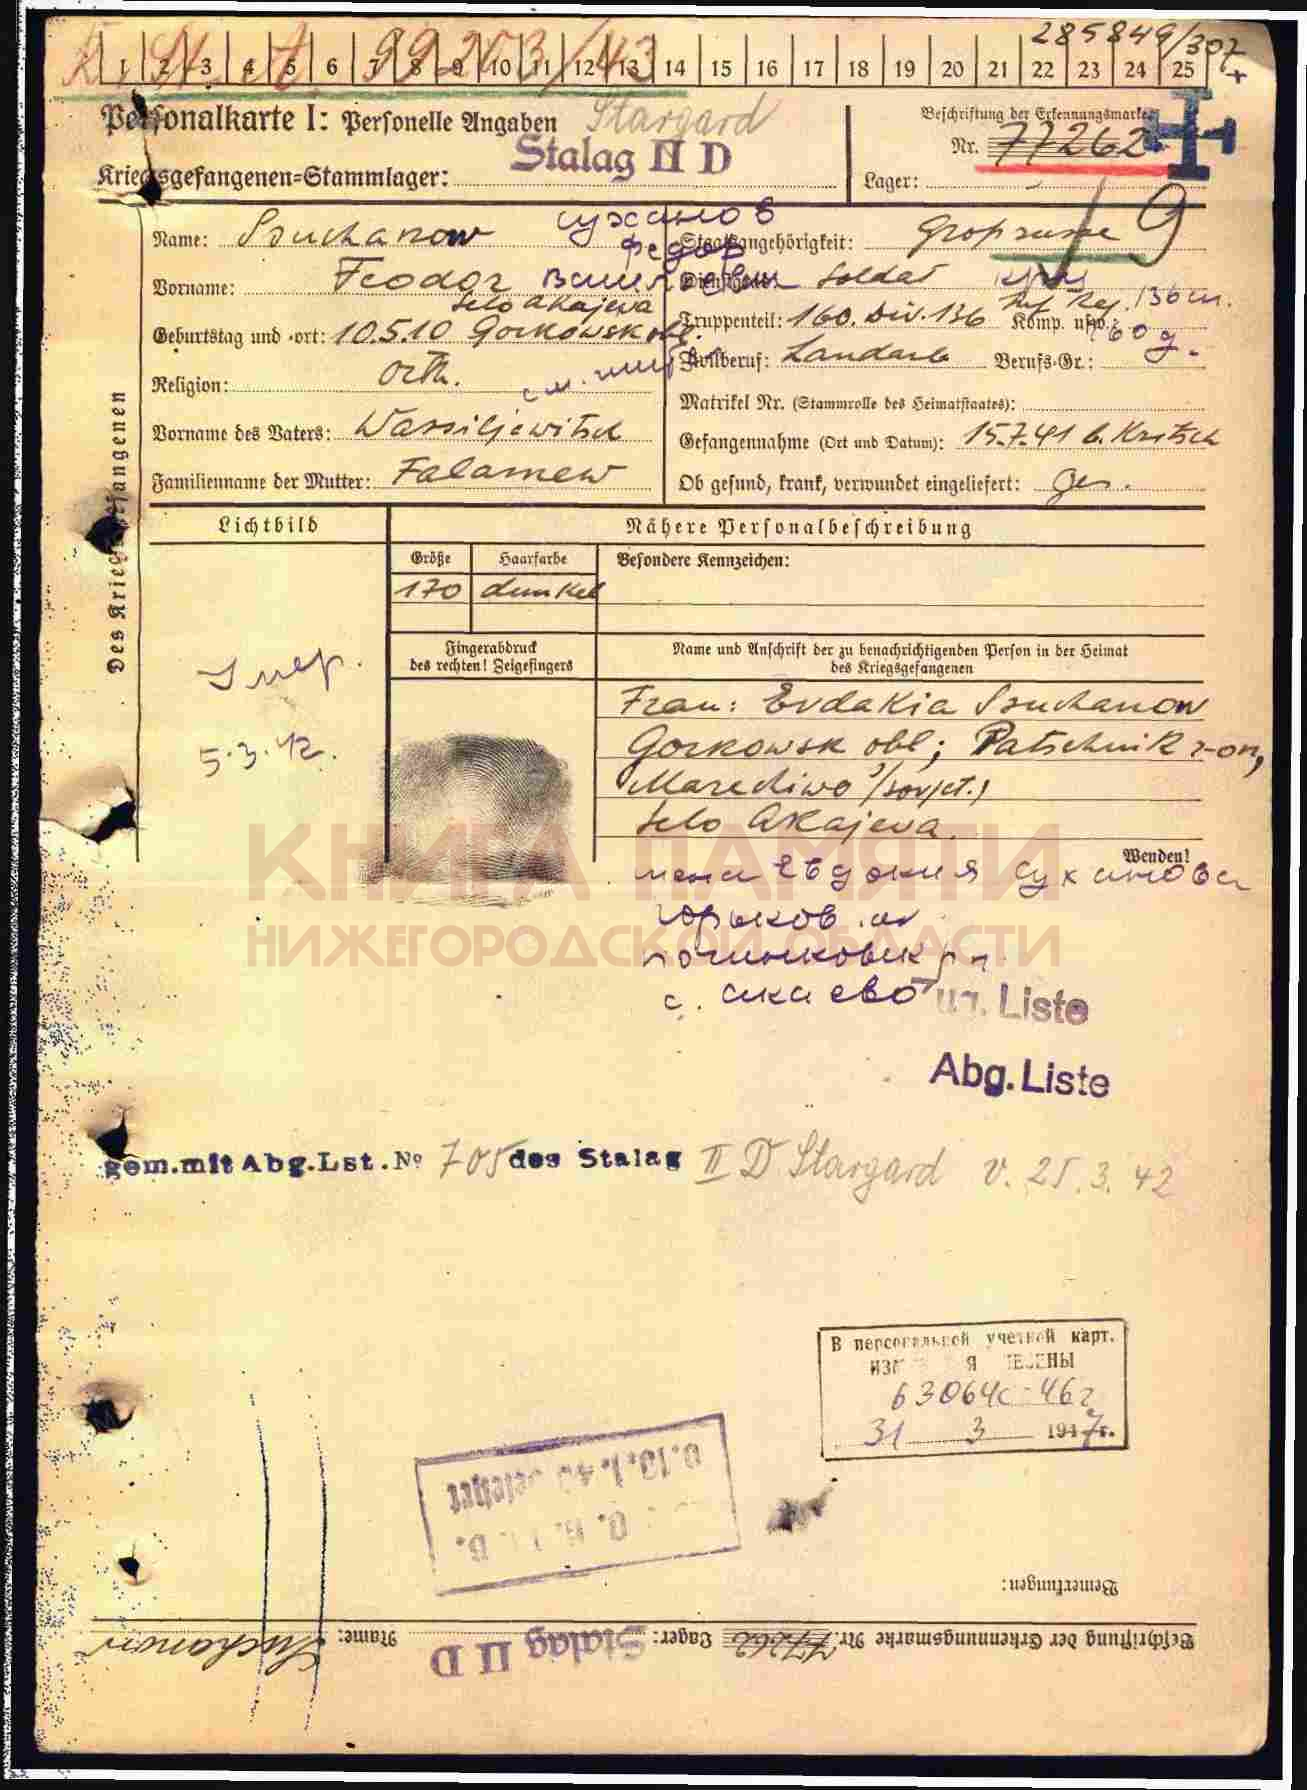 285849/307
1 2 3 4 5 6 7 8 9 10 11 12 13 14 15 16 17 18 19 20 21 22 23 24 25
Personalkarte I: Personelle Angaben
Stargard
Beschriftung der Erkennungsmarke
Nr. 77262
Kriegsgefangenen=Stammlager: Stalag II D
Lager:
Des Kriegsgefangenen
Name: Ssuchanow
Суханов
Staatsangehörigkeit: Groprusse
Федор
Vorname: Feodor
Васильевич
Dienstgrad: Soldat
Selo Akajewa
Inf. Reg. 136
Geburtstag und -ort: 10.5.10 Gorkowsk obl.
Truppenteil: 160. Div. 136 Komp. usw.:
160 д.
Religion: orth.
Zivilberuf: Landarb Berufs-Gr.:
Matrikel Nr. (Stammrolle des Heimatstaates):
Vorname des Vaters: Wassiljewitsch
Gefangennahme (Ort und Datum): 15.7.41 b. Kritsch
Familienname der Mutter: Falamew
Ob gesund, krank, verwundet eingeliefert: ges.
Lichtbild
Nähere Personalbeschreibung
Größe Haarfarbe Besondere Kennzeichen:
170 dunkel
Fingerabdruck
des rechten! Zeigefingers
Name und Anschrift der zu benachrichtigenden Person in der Heimat
des Kriegsgefangenen
Умер.
5.3.42.
Frau: Evdakia Ssuchanow
Gorkowsk obl; Patschnik r-on,
Marediwo /sovjet.)
Selo Akajewa.
Wenden!
КНИГА ПАМЯТИ
НИЖЕГОРОДСКОЙ ОБЛАСТИ
жена Евдокия Суханова
Горьков. об
Починковск р н.
с. Акаево
Liste
Abg. Liste
gem. mit Abg. Lst. No 705 des Stalag II D Stargard v. 25.3.42
В персональной учетной карт.
63064с-46г
31 3 1947г.
Bemerkungen:
Beschriftung der Erkennungsmarke Nr. 77262 Lager: Stalag II D Name: Suchanow